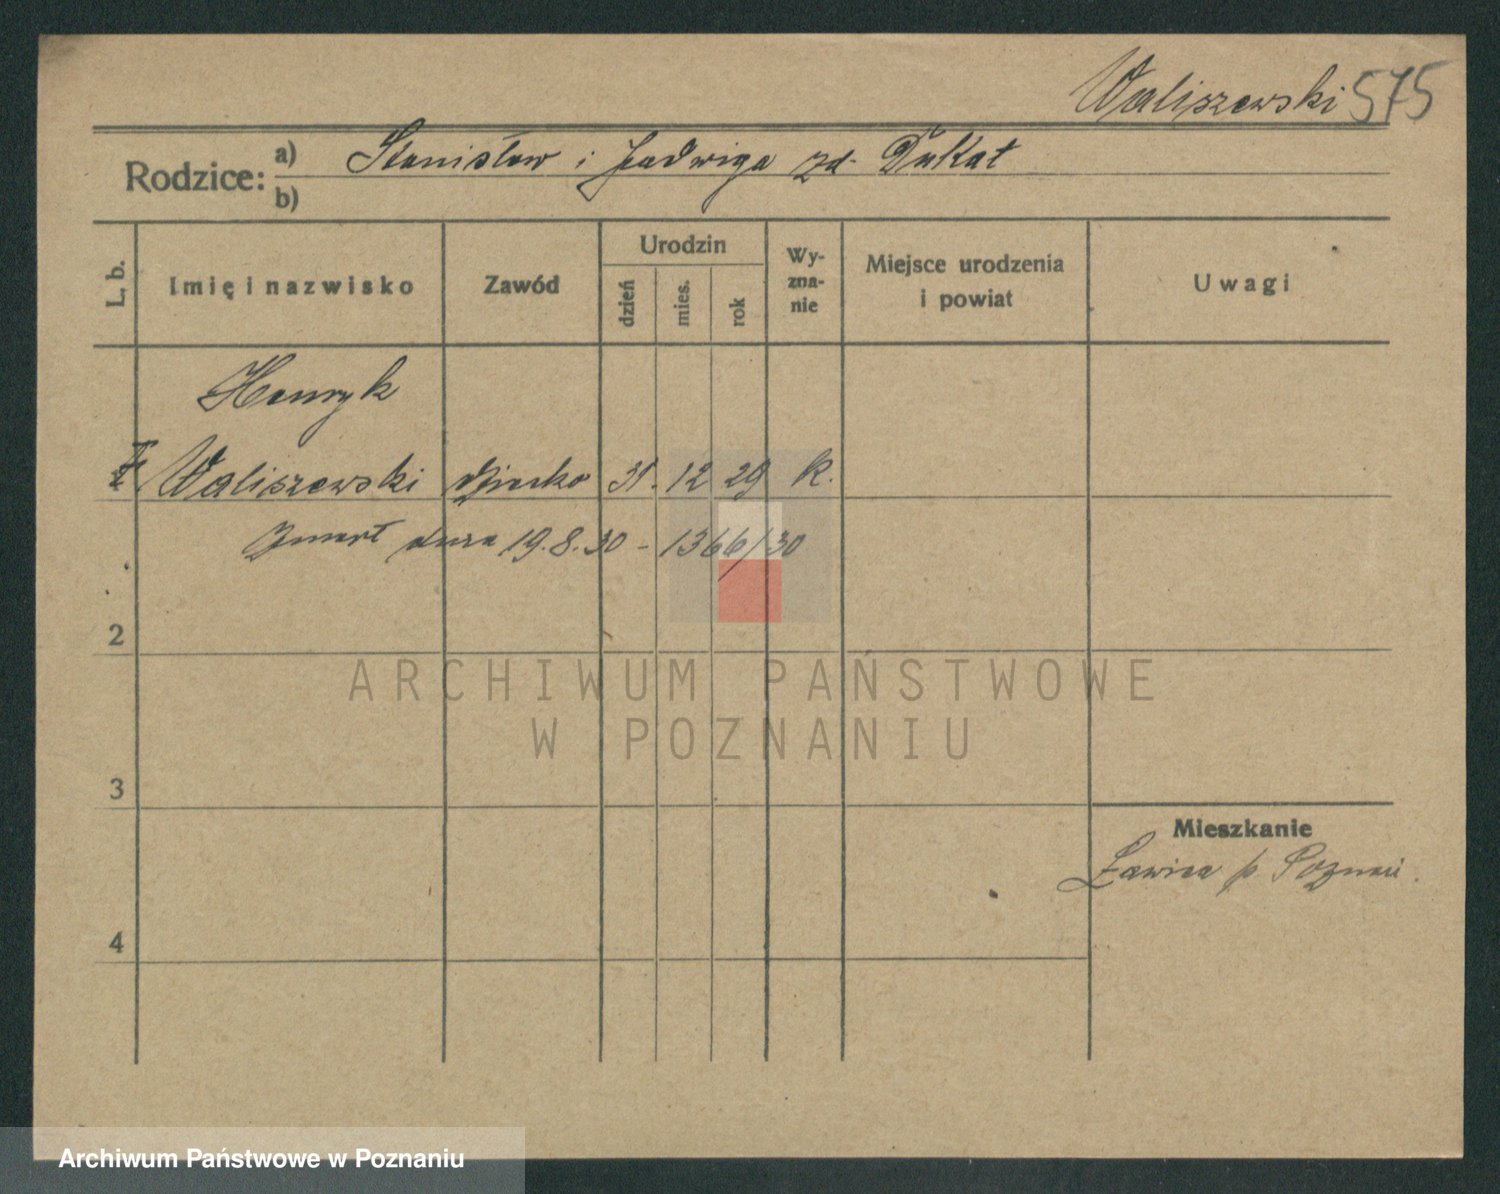 Waliszewski 575
Rodzice: a) Stanisław i Jadwiga zd. Dukat
b)
L. b. Imię i nazwisko Zawód Urodzin dzień mies. rok Wy-zna-nie Miejsce urodzenia i powiat Uwagi
Henryk
Waliszewski dziecko 31. 12 29 k.
Zmarł dnia 19.8.30 - 1366/30
2
ARCHIWUM PAŃSTWOWE
W POZNANIU
3
Mieszkanie
Ławica p. Poznań.
4
Archiwum Państwowe w Poznaniu